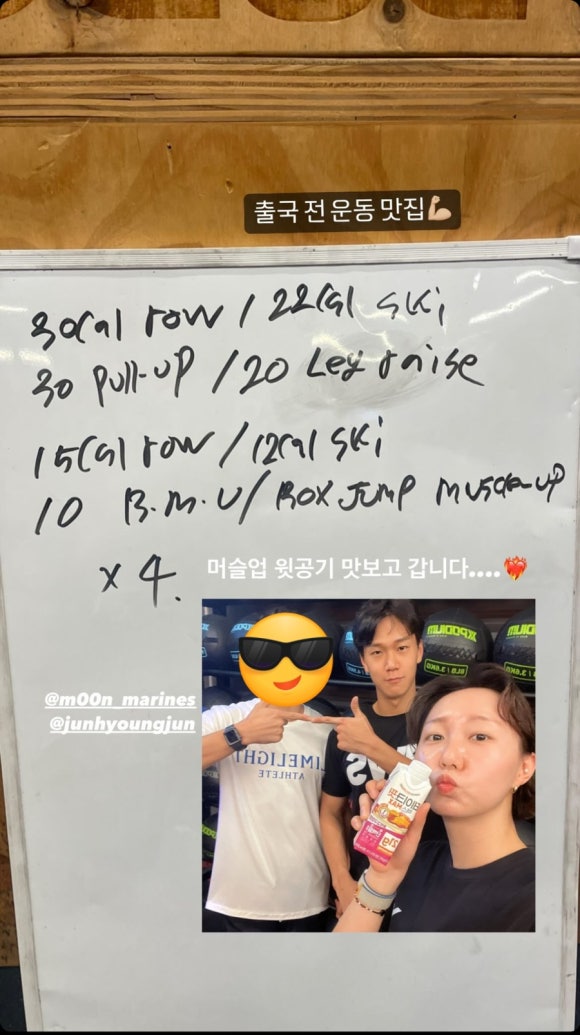 출국 전 운동 맛집💪🏻
30Cal row / 22Cal ski
30 Pull-up / 20 Leg raise
15Cal row / 12Cal ski
10 B.M.U / Box Jump muscle-up
x 4.
머슬업 윗공기 맛보고 갑니다....❤️‍🔥
@m00n_marines
@junhyoungjun
XPODIUM
XPODIUM
8LB/3.6KG
LIMELIGHT
ATHLETE
MAX
21g